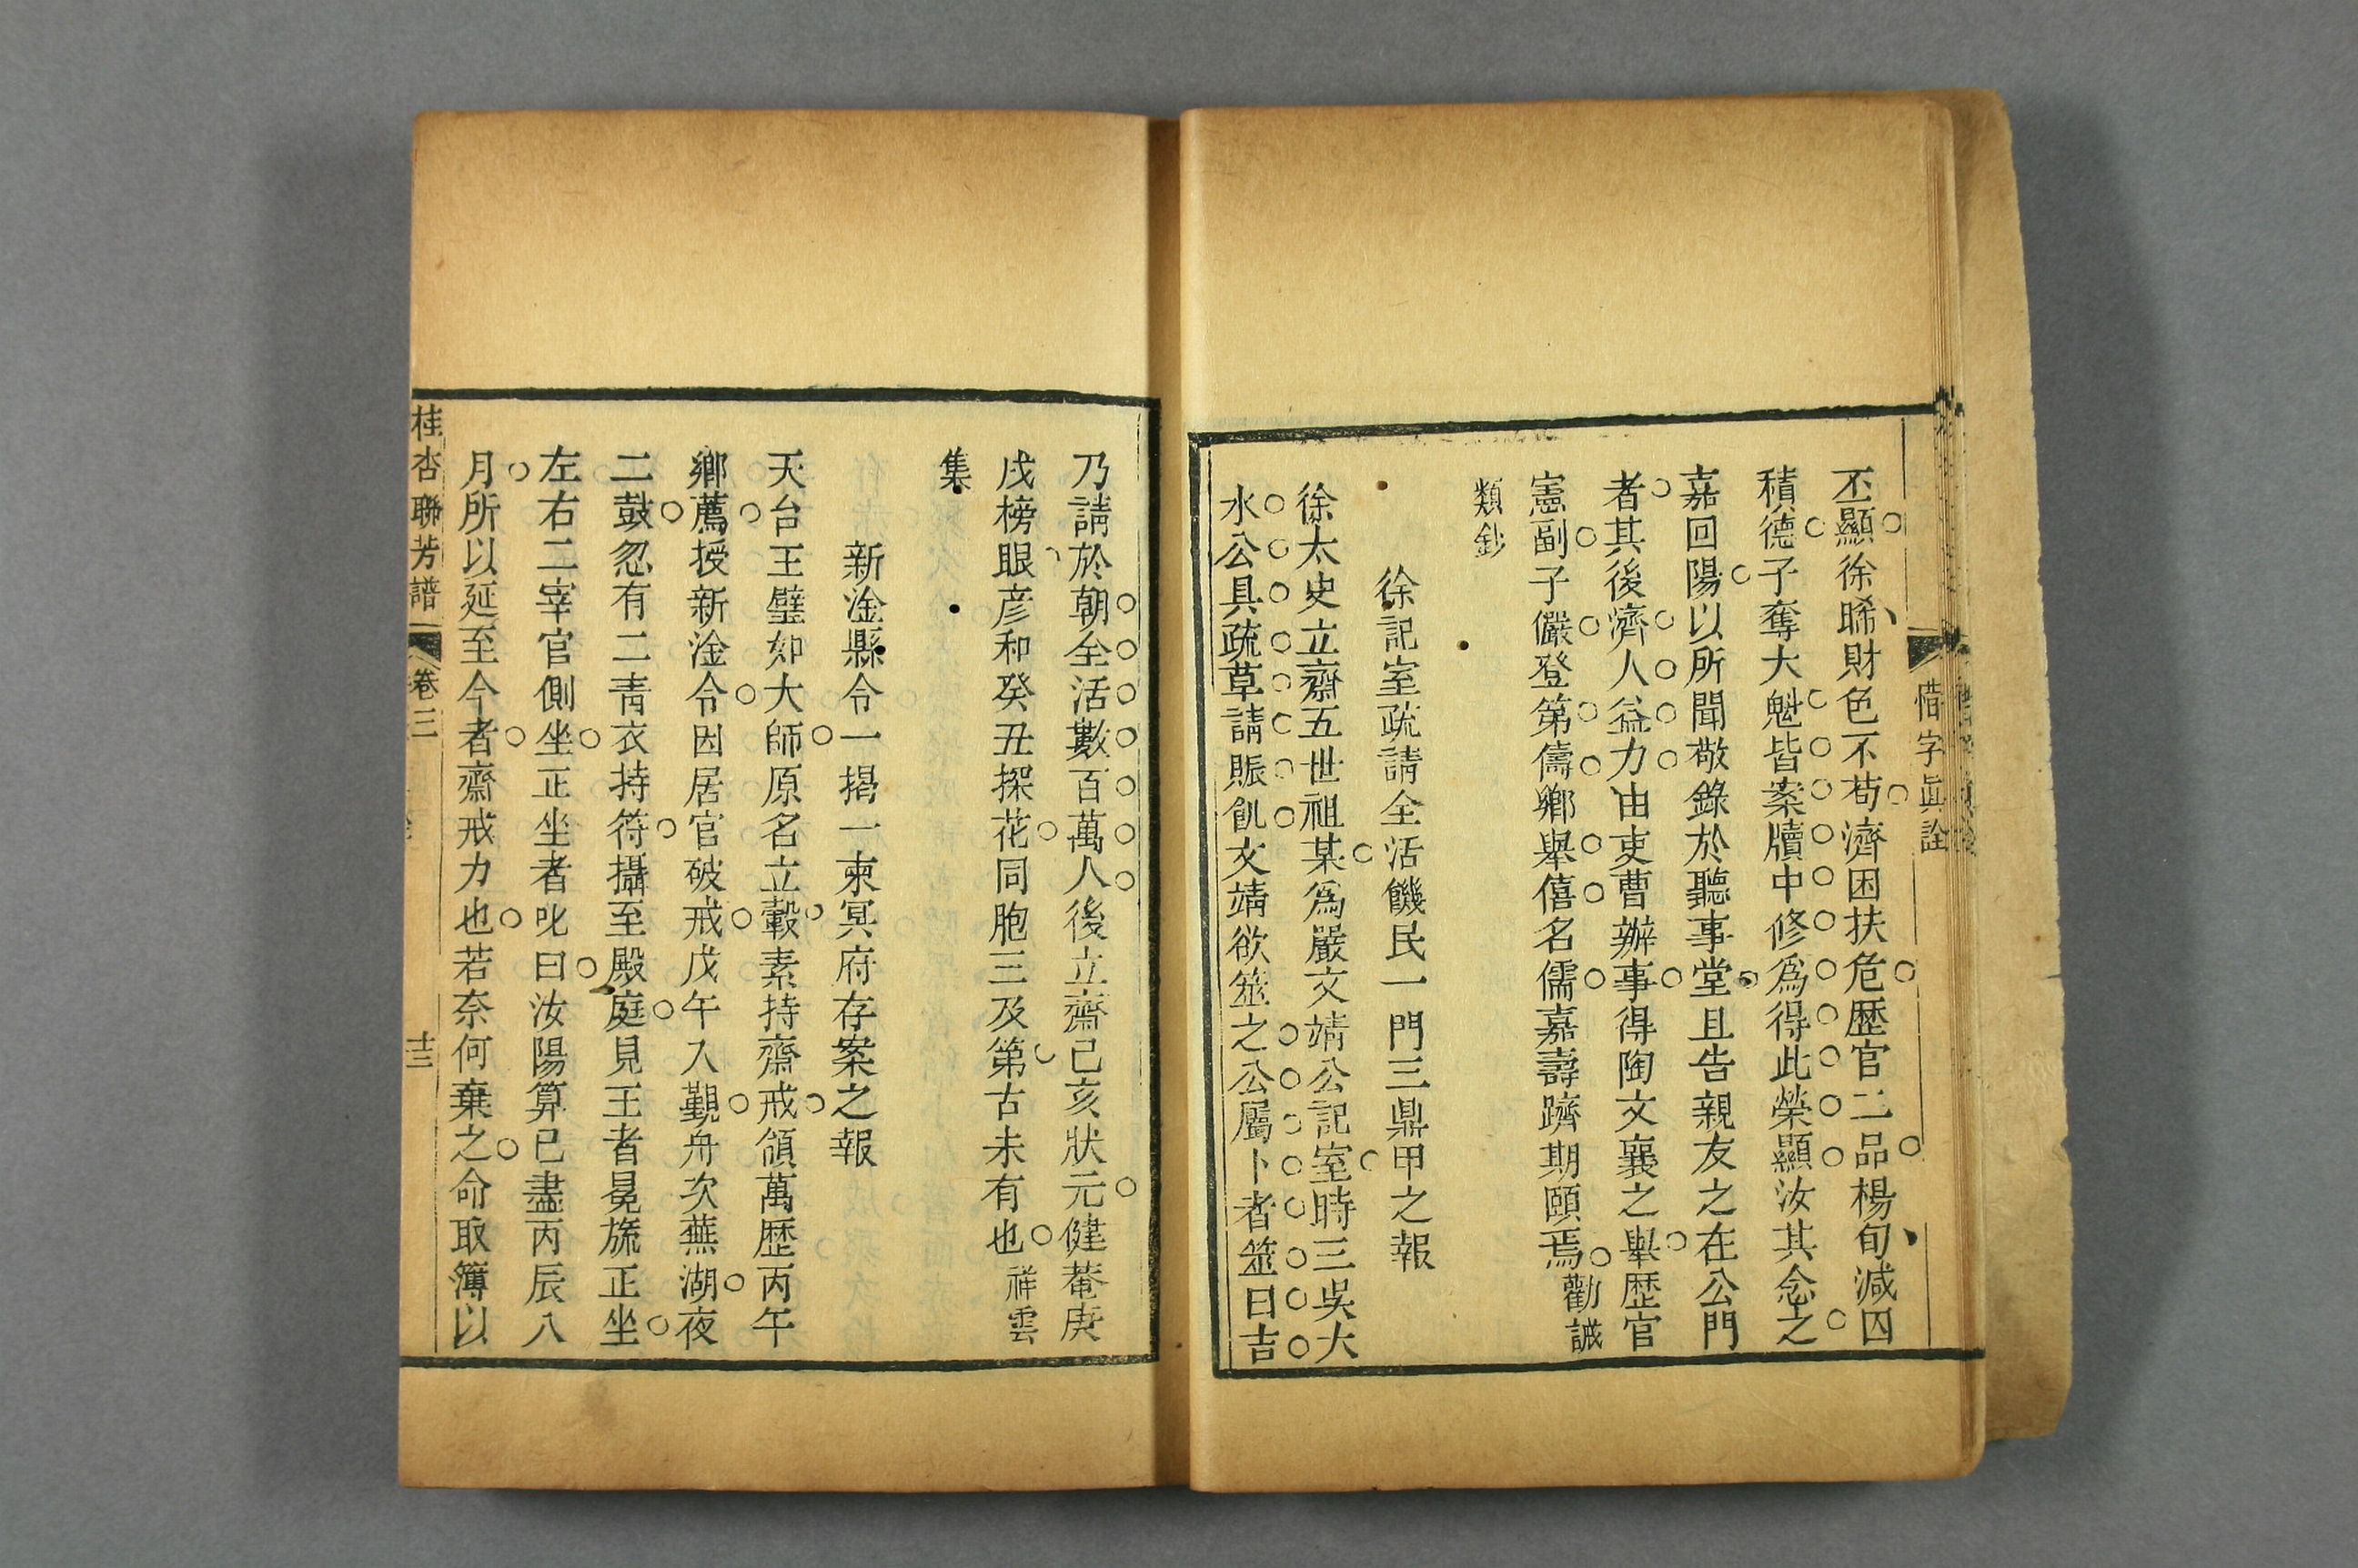 惜字眞詮
丕顯徐晞財色不苟濟困扶危歷官二品楊旬減囚
積德子奪大魁皆案牘中修爲得此榮顯汝其念之
嘉回陽以所聞敬錄於聽事堂且告親友之在公門
者其後濟人益力由吏曹辦事得陶文襄之舉歷官
憲副子儼登第儔鄉舉僖名儒嘉壽躋期頤焉勸誠
類鈔
徐記室疏請全活饑民一門三鼎甲之報
徐太史立齋五世祖某爲嚴文靖公記室時三吳大
水公具疏草請賑飢文靖欲筮之公屬卜者筮曰吉
乃請於朝全活數百萬人後立齋己亥狀元健菴庚
戌榜眼彦和癸丑探花同胞三及第古未有也祥雲
集
新淦縣令一揭一柬冥府存案之報
天台王璧如大師原名立轂素持齋戒領萬歷丙午
鄉薦授新淦令因居官破戒戊午入覲舟次蕪湖夜
二鼓忽有二青衣持符攝至殿庭見王者冕旒正坐
左右二宰官側坐正坐者叱曰汝陽算已盡丙辰八
月所以延至今者齋戒力也若奈何棄之命取簿以
桂杏聯芳譜 卷三 十三